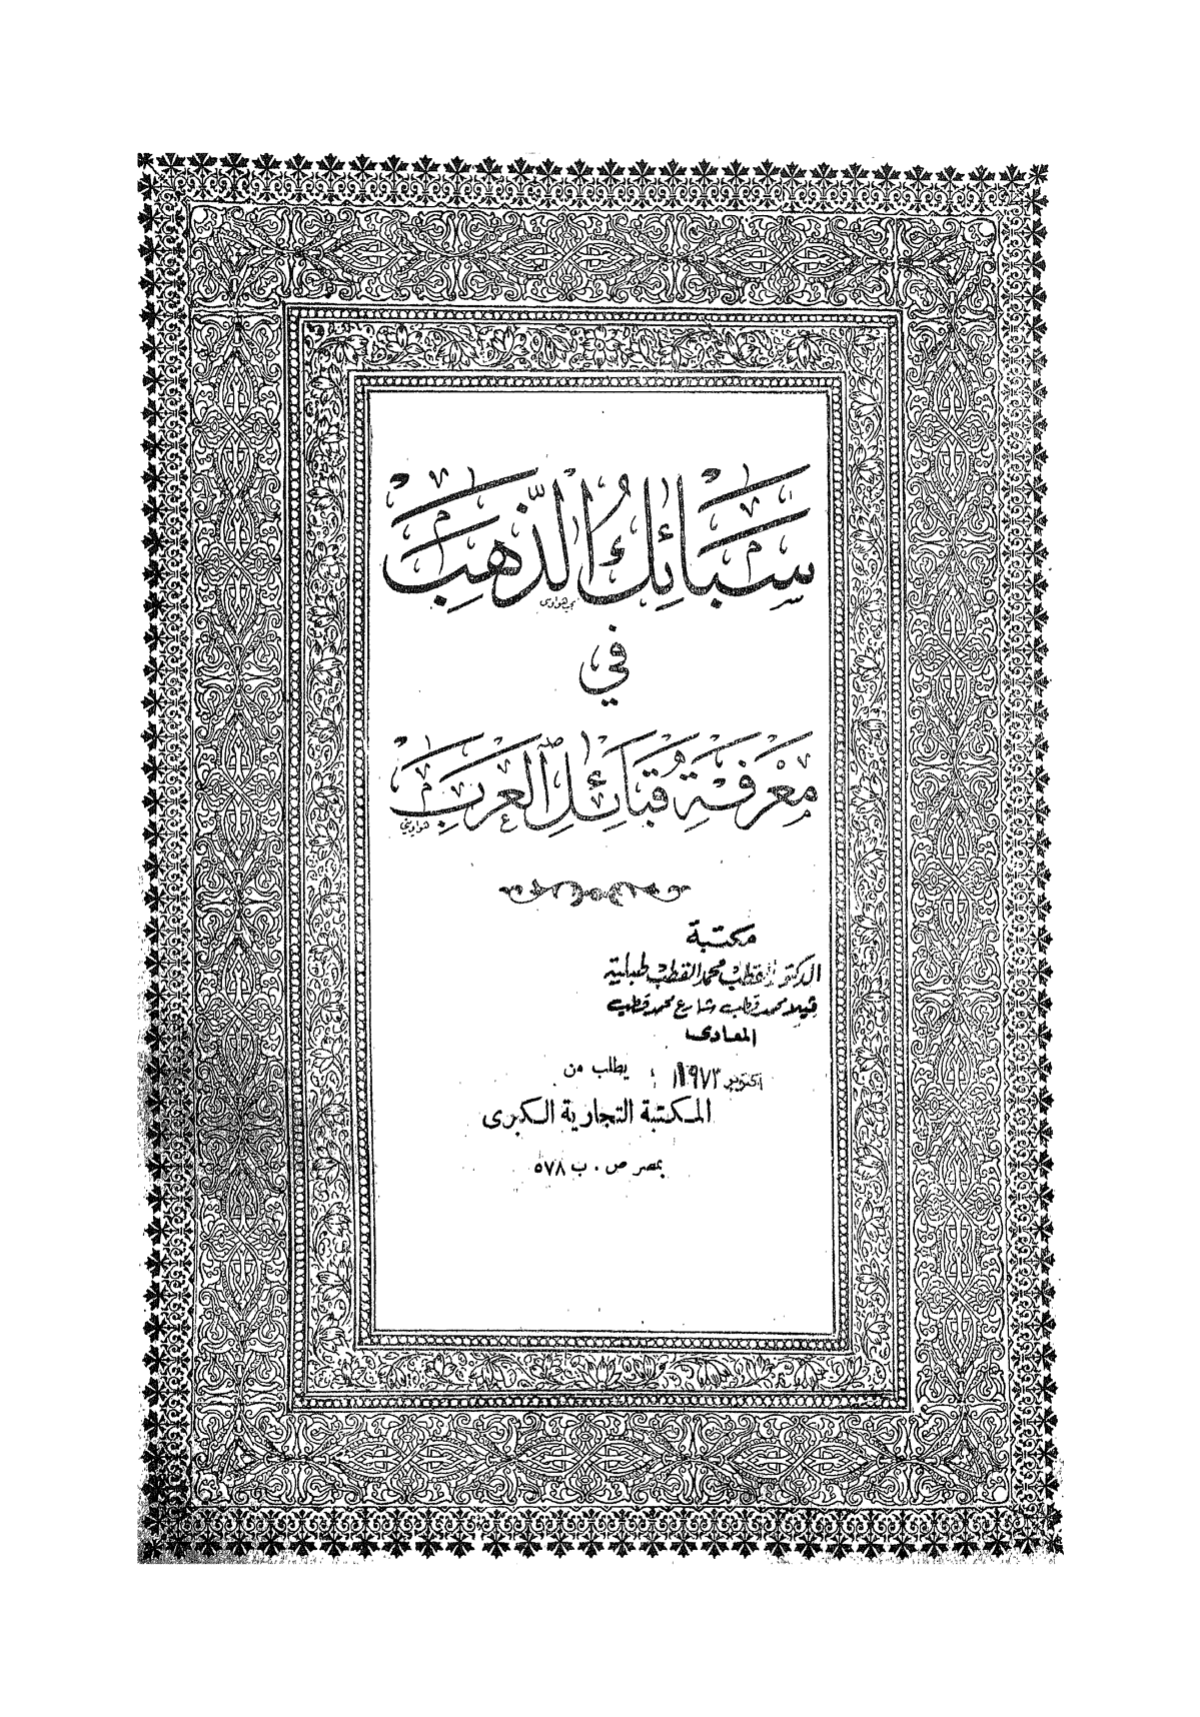 سَبَائِكُ الذَّهَبِ
في
مَعْرِفَةِ قَبَائِلِ الْعَرَبِ
مكتبة
الدكتور القطب محمد القطب طبلية
فيلا محمد قطب شارع محمد قطب
المعادى
أكتوبر ١٩٧٢
يطلب من
المكتبة التجارية الكبرى
بمصر ص . ب ٥٧٨